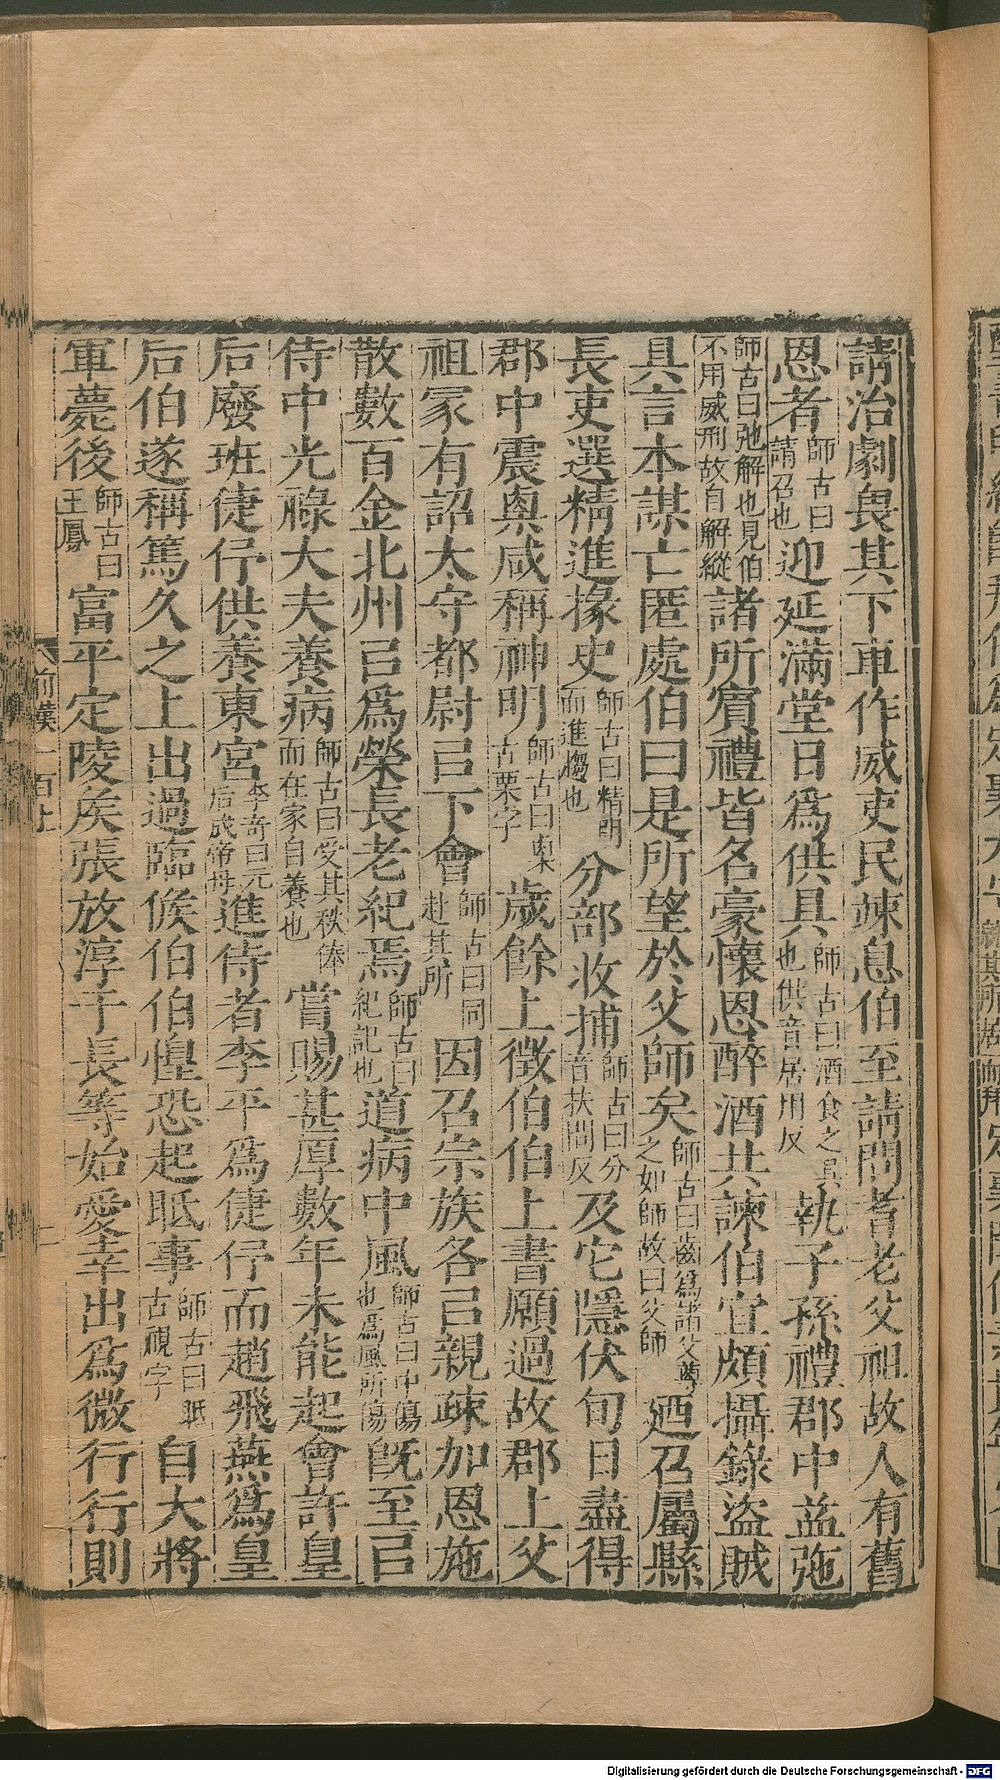 請治劇畏其下車作威吏民竦息伯至請問耆老父祖故人有舊
恩者師古曰請召也迎延滿堂日爲供具師古曰酒食之具也供音居用反執子孫禮郡中益弛
師古曰弛解也見伯不用威刑故自解縱諸所賓禮皆名豪懷恩醉酒共諫伯宜頗攝錄盜賊
具言本謀亡匿處伯曰是所望於父師矣師古曰齒爲諸父尊之如師故曰父師廼召屬縣
長吏選精進掾史師古曰精明而進趨也分部收捕師古曰分音扶問反及它隱伏旬日盡得
郡中震㮚咸稱神明師古曰㮚古栗字歲餘上徵伯伯上書願過故郡上父
祖冢有詔太守都尉㠯下會師古曰同赴其所因召宗族各㠯親疎加恩施
散數百金北州㠯爲榮長老紀焉師古曰紀記也道病中風師古曰中傷也爲風所傷旣至㠯
侍中光祿大夫養病師古曰受其秩俸而在家自養也嘗賜甚厚數年未能起會許皇
后廢班倢伃供養東宮李奇曰元后成帝母進侍者李平爲倢伃而趙飛燕爲皇
后伯遂稱篤久之上出過臨候伯伯惶恐起眂事師古曰眂古視字自大將
軍薨後師古曰王鳳富平定陵侯張放淳于長等始愛幸出爲微行行則
前漢一百上
Digitalisierung gefördert durch die Deutsche Forschungsgemeinschaft - DFG